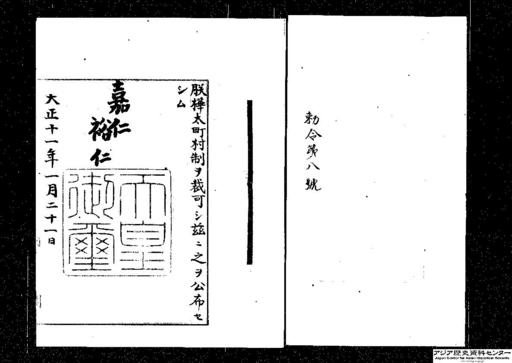 勅令第八號
朕樺太町村制ヲ裁可シ玆ニ之ヲ公布セ
シム
嘉仁
裕仁
天皇
御璽
大正十一年一月二十一日
アジア歴史資料センター
Japan Center for Asian Historical Records